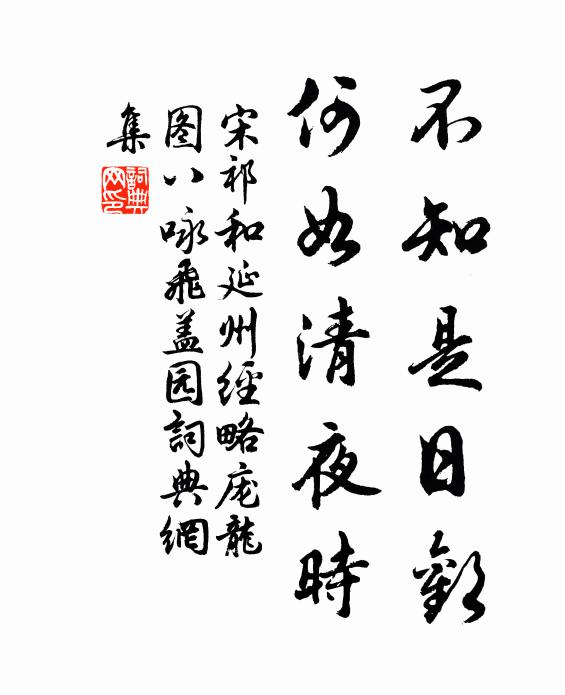 不知是日歡
何如清夜時
宋祁和延州經略庞龍
图八咏飛盖园詞典網
集
詞典网印